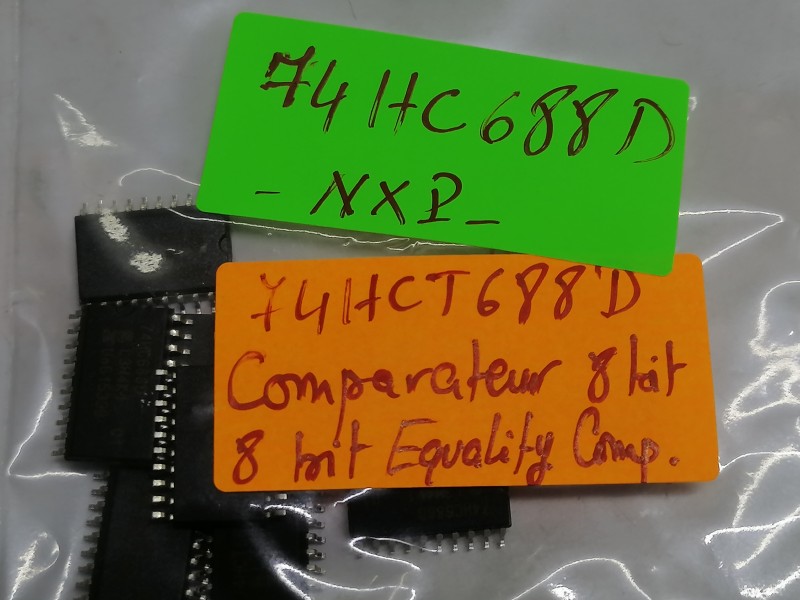 74HC688D
- NXP -
74HCT688D
Comparateur 8 bit
8 bit Equality Comp.